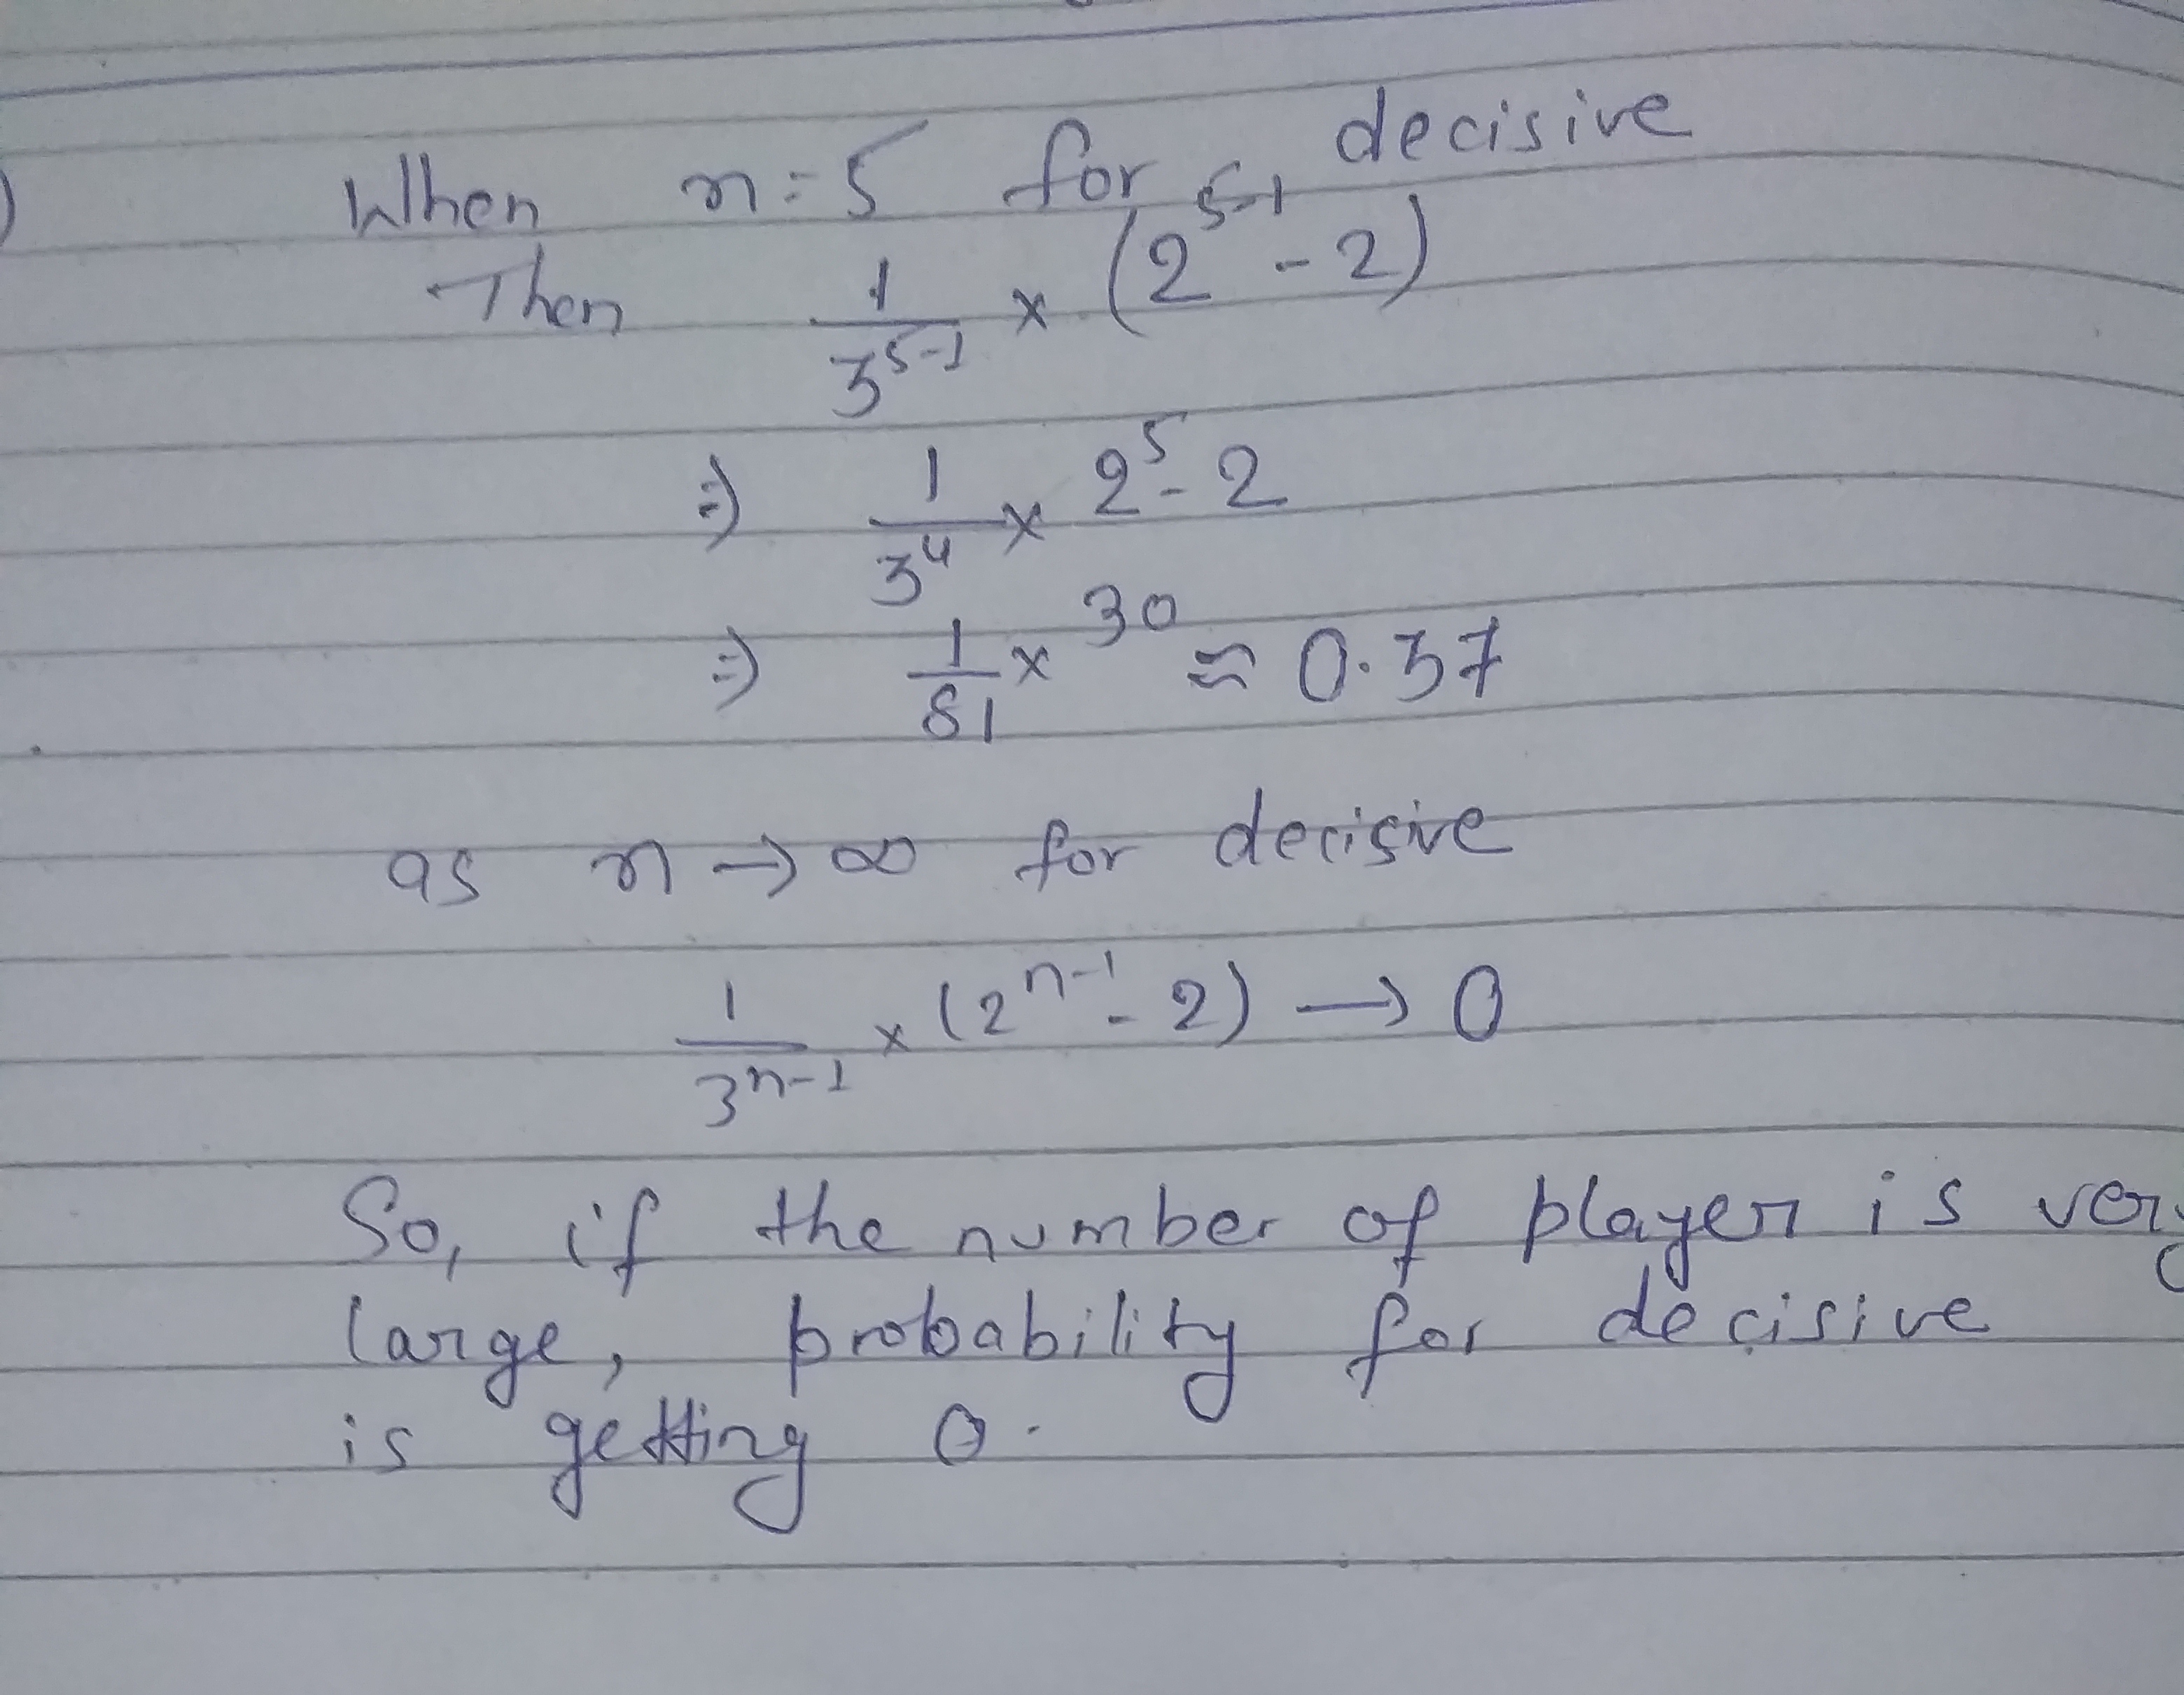 When n = 5 for decisive
Then 1/3^(5-1) × (2^(5-1) - 2)
⇒ 1/3^4 × 2^5 - 2
⇒ 1/81 × 30 ≈ 0.37
as n → ∞ for decisive
1/3^(n-1) × (2^(n-1) - 2) → 0
So, if the number of player is very
large, probability for decisive
is getting 0.